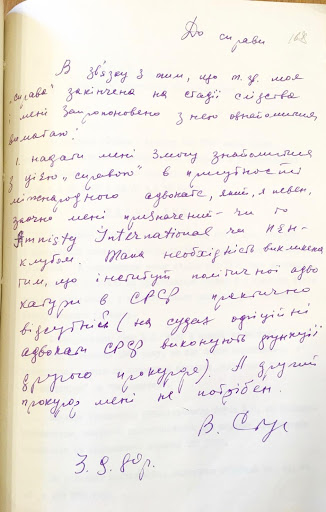 До справи 168
В зв'язку з тим, що т. зв. моя
„справа" закінчена на стадії слідства
і мені запропоновено з нею ознайомитися,
вимагаю:
1. надати мені змогу знайомитися
з цією „справою" в присутності
міжнародного адвоката, який, я певен,
мені призначений – чи то
Amnisty International чи ПЕН-
клубом. Така необхідність викликана
тим, що інститут політичної адво
катури в СРСР практично
відсутній (на судах офіційні
адвокати СРСР виконують функції
другого прокурора). А другий
прокурор мені не потрібен.
В. Стус
3.9.80р.